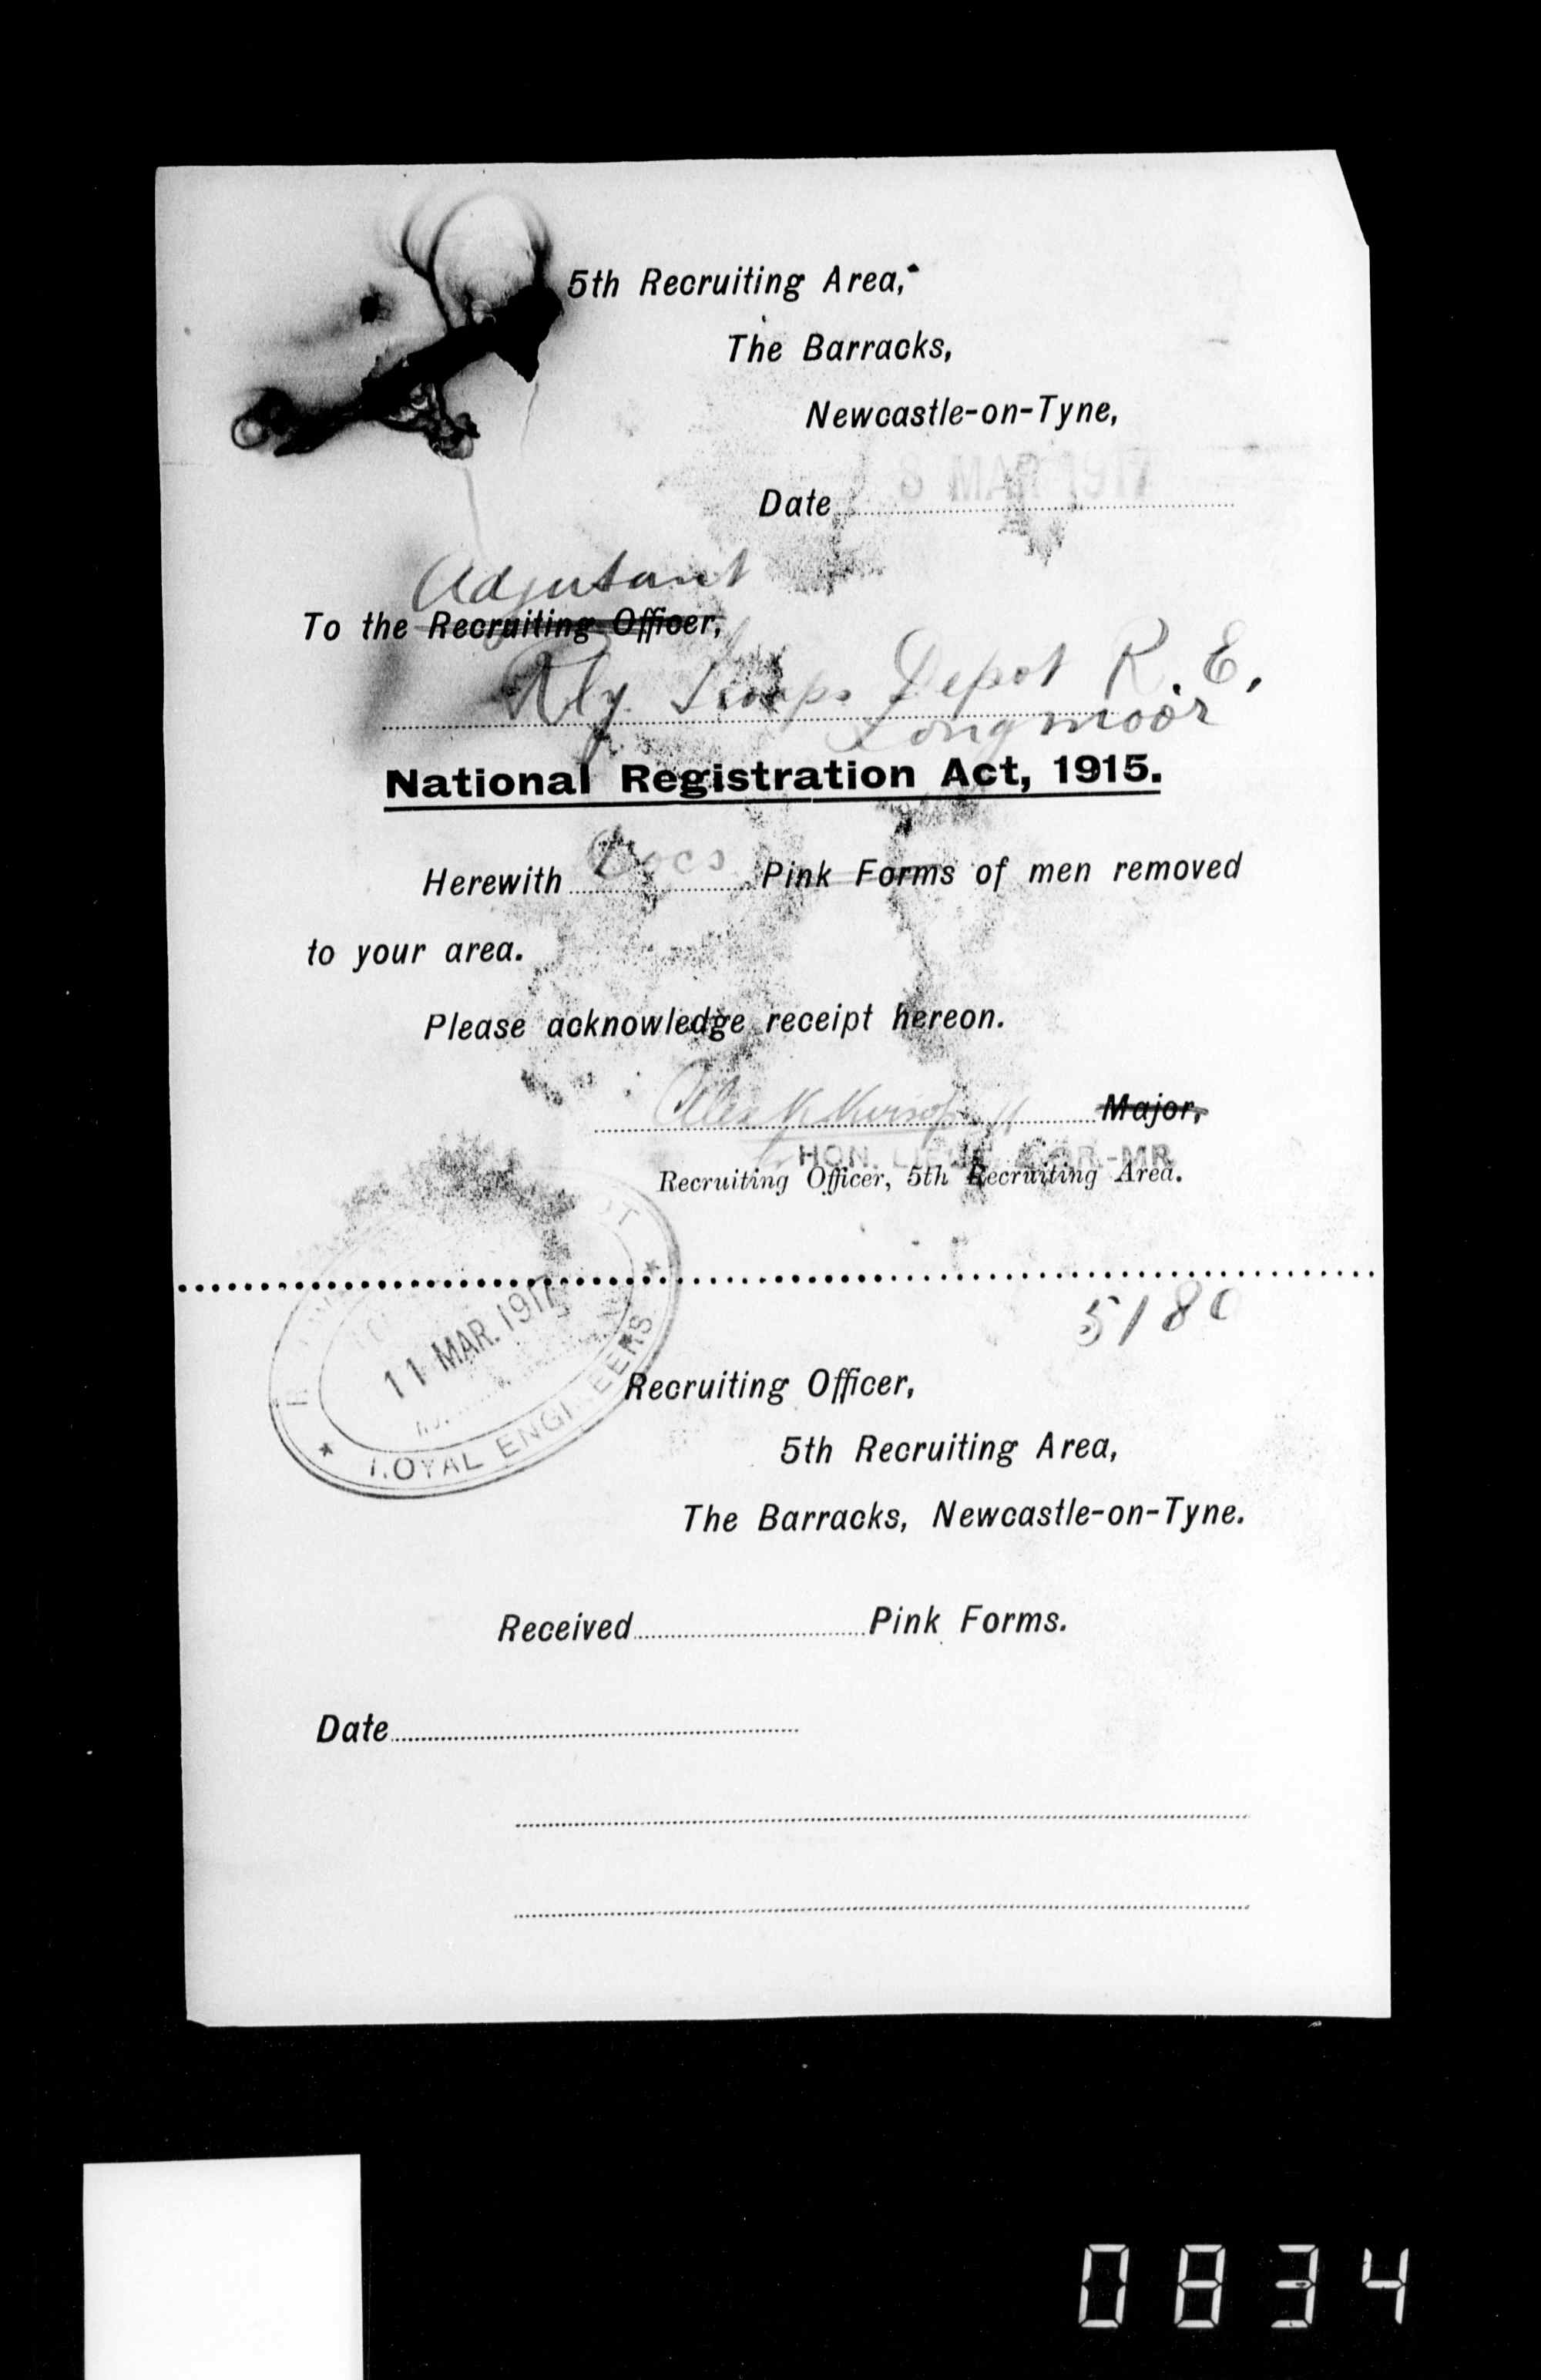 5th Recruiting Area,
The Barracks,
Newcastle-on-Tyne,
Date 8 MAR 1917
Adjutant
To the Recruiting Officer,
Rly. Troops Depot R.E,
Longmoor
National Registration Act, 1915.
Herewith Docs Pink Forms of men removed
to your area.
Please acknowledge receipt hereon.
Major,
HON. LIEUT.
Recruiting Officer, 5th Recruiting Area.
11 MAR. 1917
ROYAL ENGINEERS
Recruiting Officer,
5th Recruiting Area,
The Barracks, Newcastle-on-Tyne.
Received Pink Forms.
Date
0834